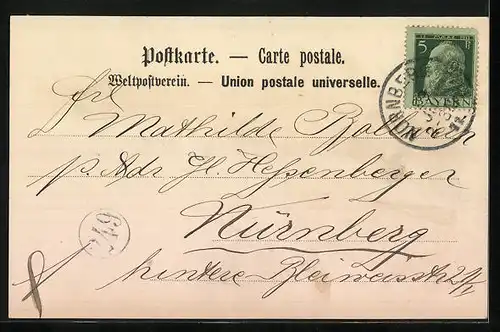 Postkarte. — Carte postale.
Weltpostverein. — Union postale universelle.
5 Pf
BAYERN
NÜRNBERG
Frl
Mathilde
p. Adr Fl. Hessenberger
Nürnberg
hintere Bleiweisstr
649